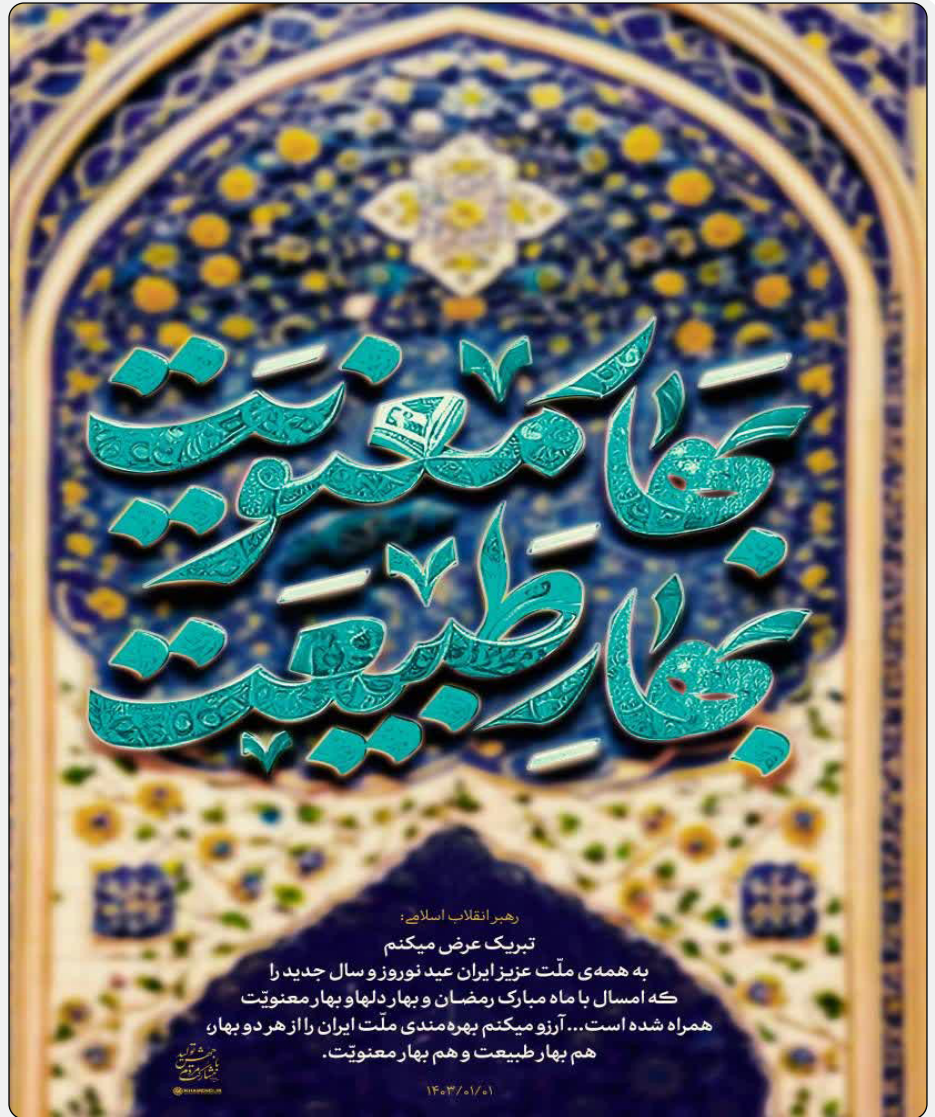 بهار معنویت
بهارِ طبیعت
رهبر انقلاب اسلامی:
تبریک عرض میکنم
به همه‌ی ملّت عزیز ایران عید نوروز و سال جدید را
که امسال با ماه مبارک رمضان و بهار دلها و بهار معنویّت
همراه شده است... آرزو میکنم بهره‌مندی ملّت ایران را از هر دو بهار،
هم بهار طبیعت و هم بهار معنویّت.
جهش تولید
با مشارکت مردم
KHAMENEI.IR
۱۴۰۳/۰۱/۰۱